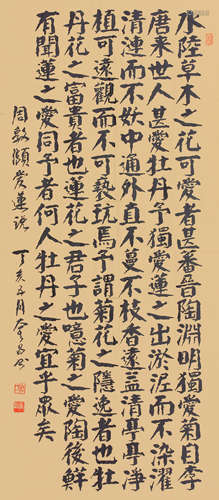 水陸草木之花可愛者甚蕃晉陶淵明獨愛菊自李
唐来世人甚愛牡丹予獨愛蓮之出淤泥而不染濯
清漣而不妖中通外直不蔓不枝香遠益清亭亭淨
植可遠觀而不可褻玩焉予謂菊花之隱逸者也牡
丹花之富貴者也蓮花之君子也噫菊之愛陶後鮮
有聞蓮之愛同予者何人牡丹之愛宜乎眾矣
周敦頤愛蓮說 丁亥 月